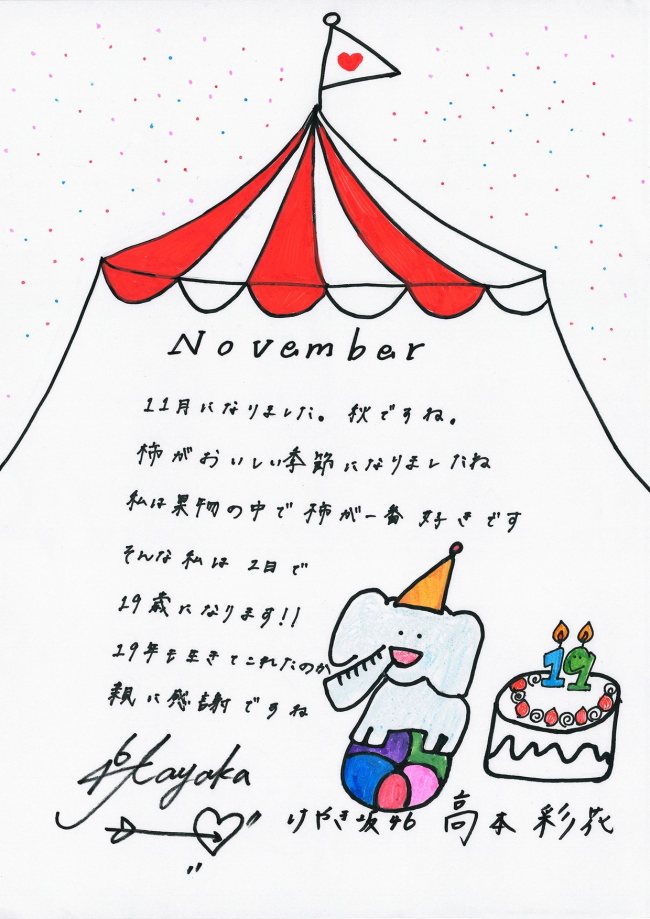 November
11月になりました。秋ですね。
柿がおいしい季節になりましたね
私は果物の中で柿が一番好きです
そんな私は2日で
19歳になります!!
19年も生きてこれたのか
親に感謝ですね
19
Ayaka
けやき坂46 高本彩花